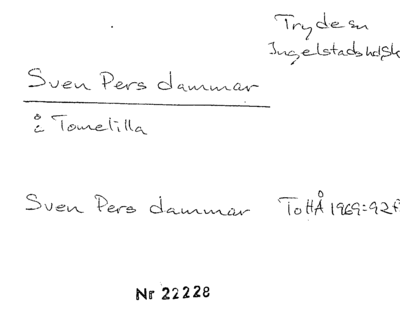 Tryde sn
Ingelstads hd, Sk
Sven Pers dammar
å i Tomelilla
Sven Pers dammar ToHÅ 1969:92f
Nr 22228